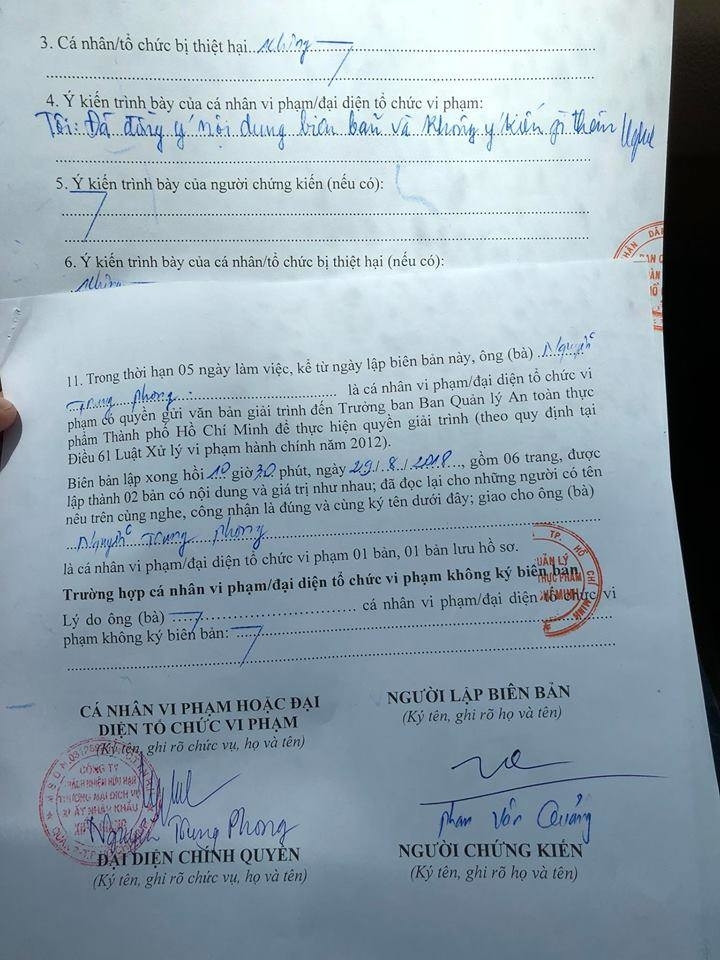 3. Cá nhân/tổ chức bị thiệt hại: không
4. Ý kiến trình bày của cá nhân vi phạm/đại diện tổ chức vi phạm:
Tôi: Đã đồng ý nội dung biên bản và không ý kiến gì thêm
5. Ý kiến trình bày của người chứng kiến (nếu có):
6. Ý kiến trình bày của cá nhân/tổ chức bị thiệt hại (nếu có):
không
11. Trong thời hạn 05 ngày làm việc, kể từ ngày lập biên bản này, ông (bà) Nguyễn
Trung Phong là cá nhân vi phạm/đại diện tổ chức vi
phạm có quyền gửi văn bản giải trình đến Trưởng ban Ban Quản lý An toàn thực
phẩm Thành phố Hồ Chí Minh để thực hiện quyền giải trình (theo quy định tại
Điều 61 Luật Xử lý vi phạm hành chính năm 2012).
Biên bản lập xong hồi 10 giờ 30 phút, ngày 29/8/2018, gồm 06 trang, được
lập thành 02 bản có nội dung và giá trị như nhau; đã đọc lại cho những người có tên
nêu trên cùng nghe, công nhận là đúng và cùng ký tên dưới đây; giao cho ông (bà)
Nguyễn Trung Phong
là cá nhân vi phạm/đại diện tổ chức vi phạm 01 bản, 01 bản lưu hồ sơ.
Trường hợp cá nhân vi phạm/đại diện tổ chức vi phạm không ký biên bản
Lý do ông (bà) cá nhân vi phạm/đại diện tổ chức vi
phạm không ký biên bản:
CÁ NHÂN VI PHẠM HOẶC ĐẠI
DIỆN TỔ CHỨC VI PHẠM
(Ký tên, ghi rõ chức vụ, họ và tên)
NGƯỜI LẬP BIÊN BẢN
(Ký tên, ghi rõ họ và tên)
CÔNG TY
TRÁCH NHIỆM HỮU HẠN
THƯƠNG MẠI DỊCH VỤ
Nguyễn Trung Phong
Phan Văn Quảng
ĐẠI DIỆN CHÍNH QUYỀN
(Ký tên, ghi rõ chức vụ, họ và tên)
NGƯỜI CHỨNG KIẾN
(Ký tên, ghi rõ họ và tên)